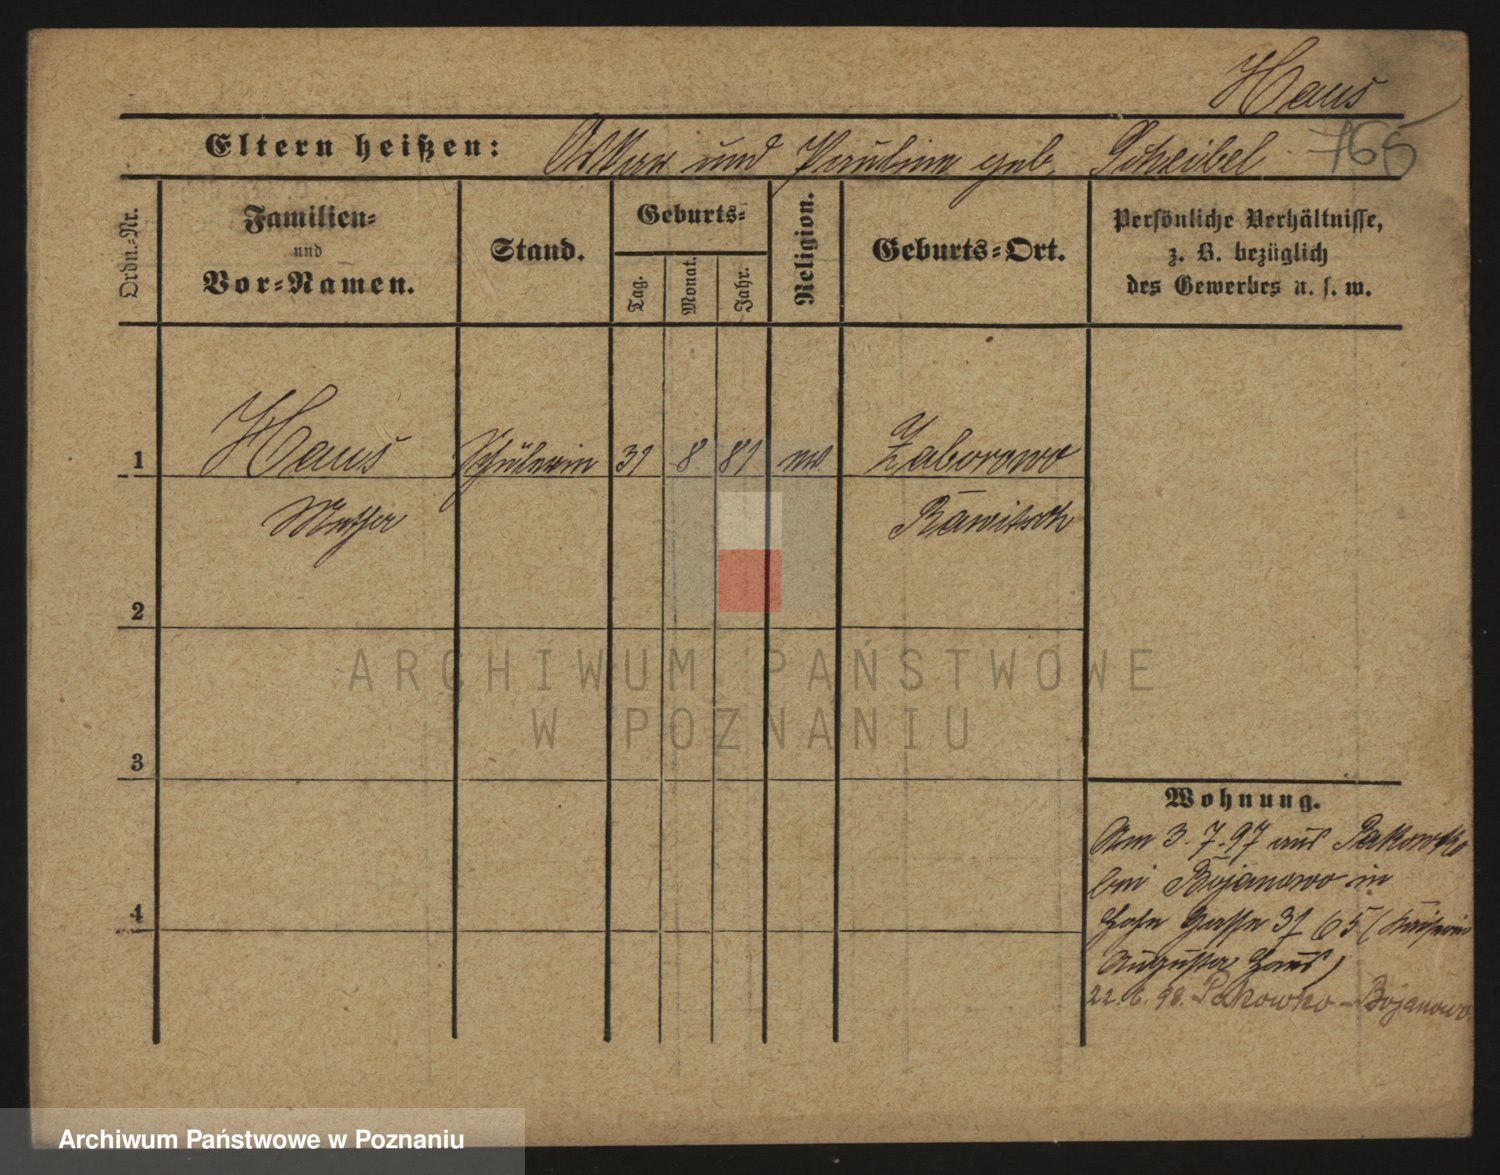 Haus
Eltern heißen: Oskar und Pauline geb. Scheibel 765
Ordn.-Nr.
Familien-
und
Vor-Namen.
Stand.
Geburts-
Tag.
Monat.
Jahr.
Religion.
Geburts-Ort.
Persönliche Verhältnisse,
z. B. bezüglich
des Gewerbes u. s. w.
1 Haus Schülerin 31 8 81 ev Zaborowo
Rawitsch
2
3
4
Wohnung.
Am 3.7.97 aus Pakowko
bei Bojanowo in
Hohe Gasse 3/ 65 (Kaiserin
Augusta Haus)
22.6.98. Pakowko - Bojanowo
ARCHIWUM PAŃSTWOWE
W POZNANIU
Archiwum Państwowe w Poznaniu